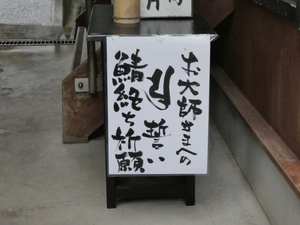 お大師さまへの
誓い
鯖絶ち祈願